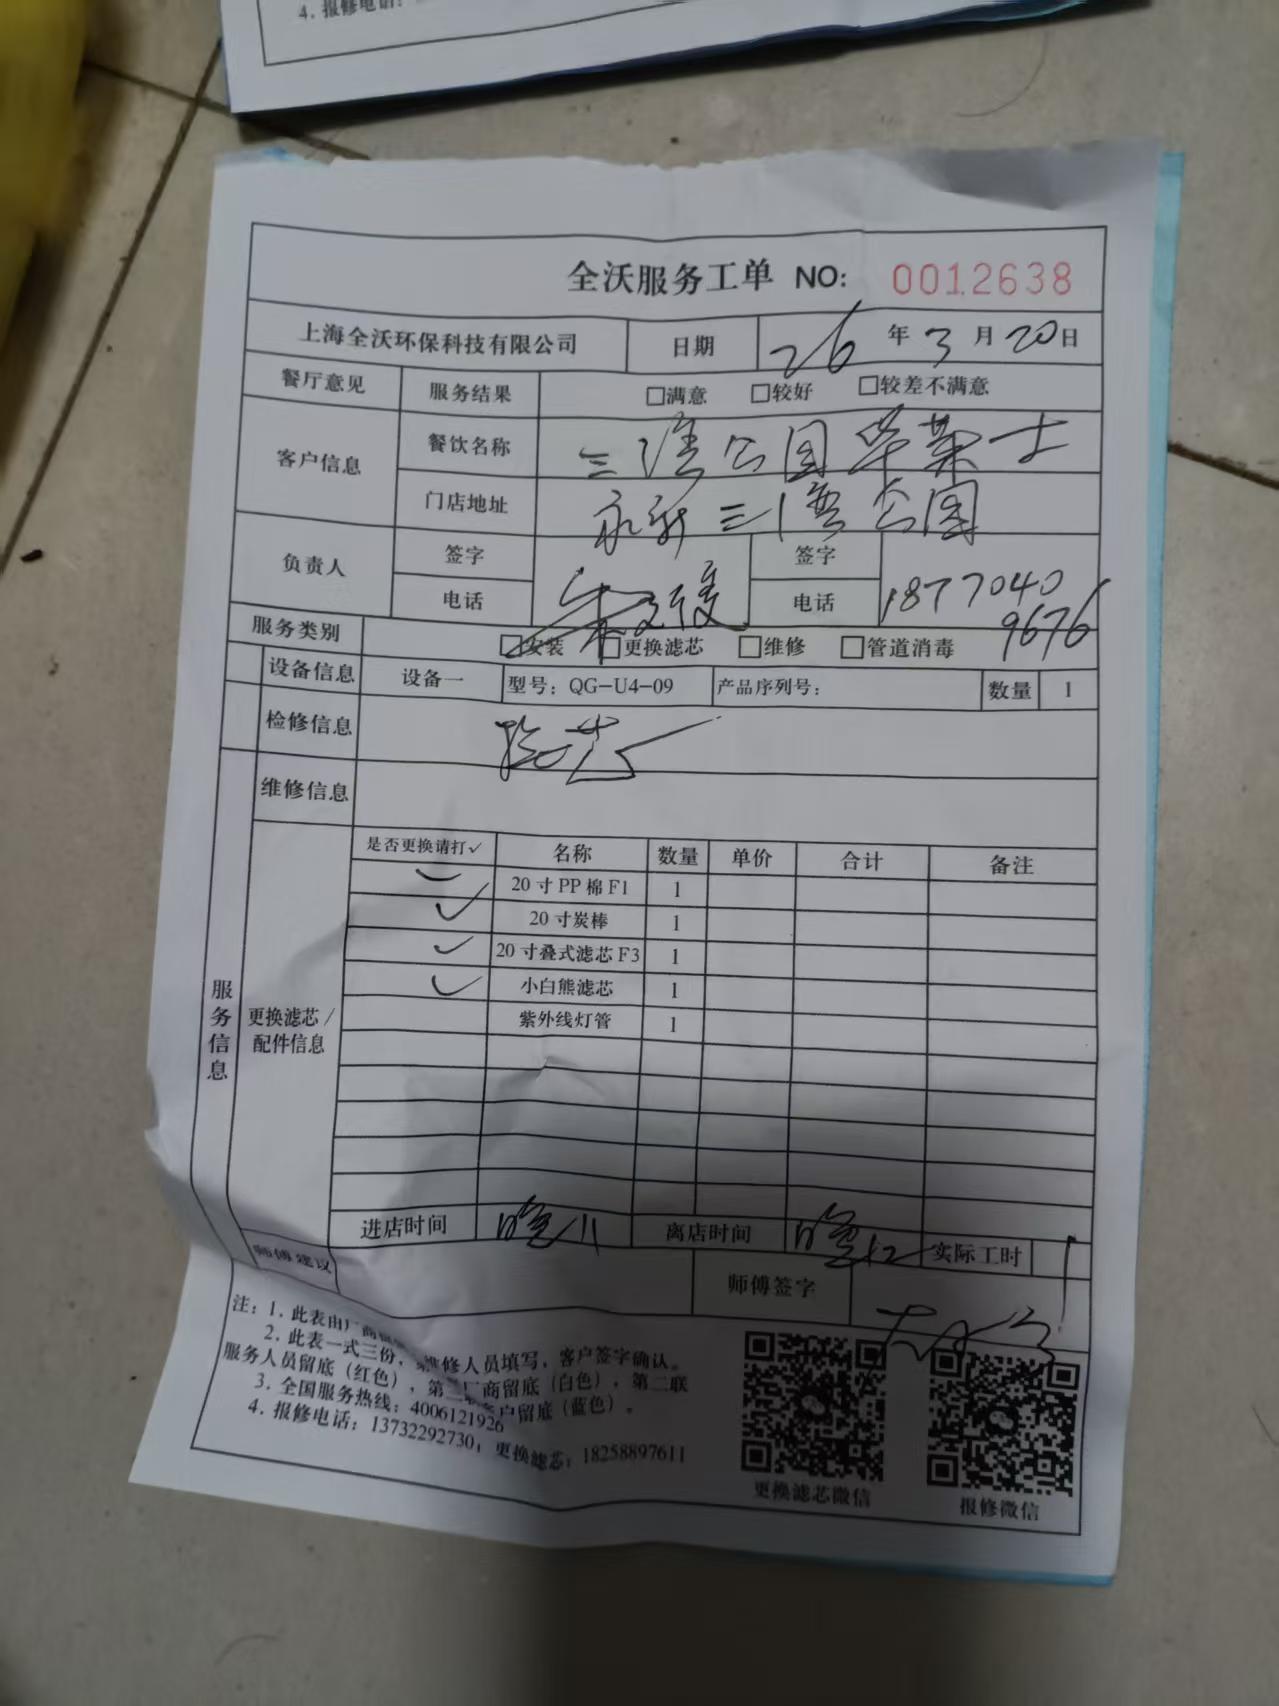 4. 报修电话:
全沃服务工单 NO: 0012638
上海全沃环保科技有限公司 日期 26 年 3 月 20 日
餐厅意见 服务结果 □满意 □较好 □较差不满意
客户信息 餐饮名称 三湾公园华莱士
门店地址 永新三湾公园
负责人 签字 签字
电话 电话 18770409676
服务类别 □安装 □更换滤芯 □维修 □管道消毒
设备信息 设备一 型号: QG-U4-09 产品序列号: 数量 1
检修信息 换芯
维修信息
服务信息
更换滤芯/配件信息
是否更换请打✓ 名称 数量 单价 合计 备注
20寸PP棉F1 1
✓ 20寸炭棒 1
✓ 20寸叠式滤芯F3 1
✓ 小白熊滤芯 1
紫外线灯管 1
进店时间 晚11 离店时间 晚12 实际工时 1
师傅建议 师傅签字
注: 1. 此表由厂商
2. 此表一式三份, 维修人员填写, 客户签字确认。
服务人员留底 (红色), 第 厂商留底 (白色), 第二联
客户留底 (蓝色)。
3. 全国服务热线: 4006121926
4. 报修电话: 13732292730; 更换滤芯: 18258897611
更换滤芯微信 报修微信